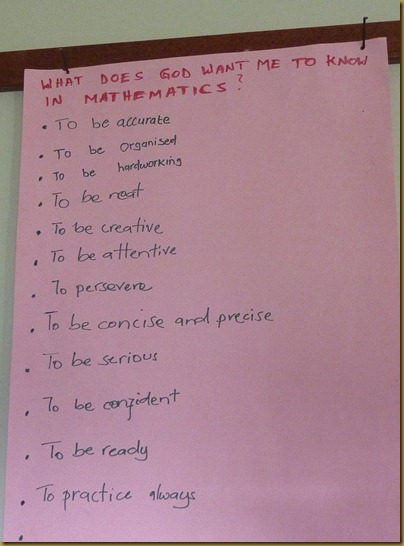 WHAT DOES GOD WANT ME TO KNOW
IN MATHEMATICS?
• To be accurate
• To be organised
• To be hardworking
• To be neat
• To be creative
• To be attentive
• To persevere
• To be concise and precise
• To be serious
• To be confident
• To be ready
• To practice always
•